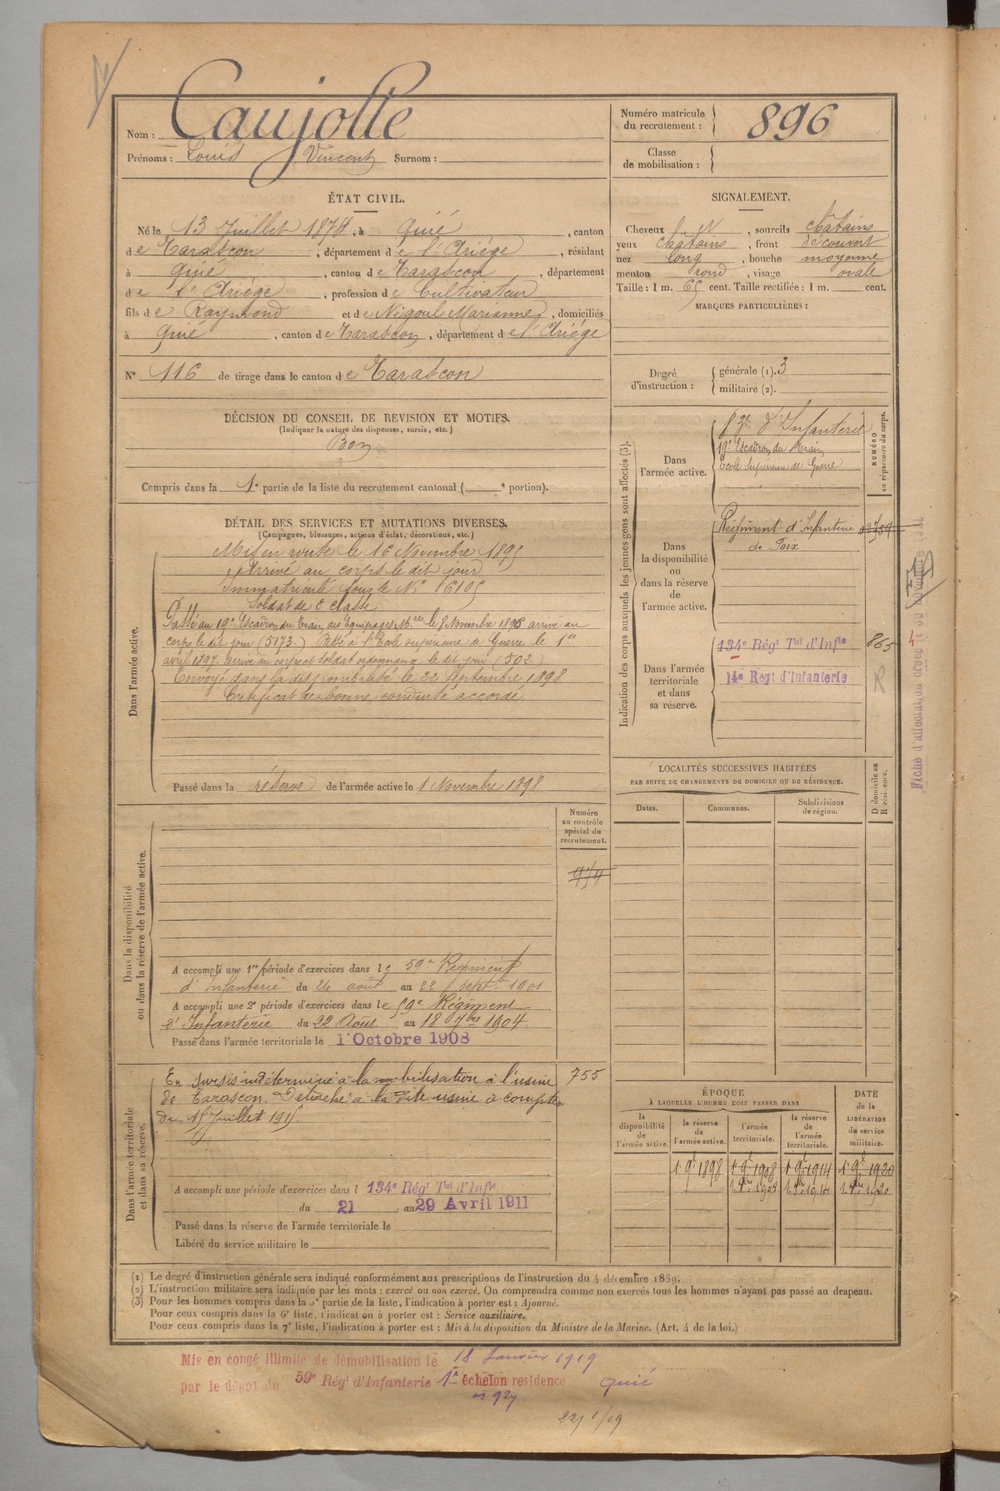 Nom : Caujolle
Prénoms : Louis Vincent Surnom :
Numéro matricule du recrutement : 896
Classe de mobilisation :
ÉTAT CIVIL.
Né le 13 Juillet 1874, à Quié, canton
de Tarascon, département de l'Ariége, résidant
à Quié, canton de Tarascon, département
de l'Ariége, profession de Cultivateur
fils de Raymond et de Nigoul Marianne, domiciliés
à Quié, canton de Tarascon, département de l'Ariége
N° 116 de tirage dans le canton de Tarascon
SIGNALEMENT.
Cheveux, sourcils chatains
yeux chatains, front découvert
nez long, bouche moyenne
menton rond, visage ovale
Taille : 1 m. 65 cent. Taille rectifiée : 1 m. cent.
MARQUES PARTICULIÈRES :
Degré d'instruction : générale (1). 3
militaire (2).
DÉCISION DU CONSEIL DE REVISION ET MOTIFS.
(Indiquer la nature des dispenses, sursis, etc.)
Bon
Compris dans la 1e partie de la liste du recrutement cantonal ( e portion).
DÉTAIL DES SERVICES ET MUTATIONS DIVERSES.
(Campagnes, blessures, actions d'éclat, décorations, etc.)
Dans l'armée active.
Mis en route le 16 Novembre 1895
Arrivé au corps le dit jour
Immatriculé sous le N° 6105
Soldat de 2e classe
Passé au 19e Escadron du Train des Equipages Mres le 8 Novembre 1896 arrivé au
corps le dit jour (5173.) Passé à l'Ecole supérieure de Guerre le 1er
avril 1897 arrivé au corps et soldat ordonnance le dit jour (502)
Envoyé dans la disponibilité le 22 Septembre 1898
Certificat de bonne conduite accordé
Passé dans la réserve de l'armée active le 1 Novembre 1898
Indication des corps auxquels les jeunes gens sont affectés (3).
NUMÉRO au répertoire du corps.
Dans l'armée active.
d'Infanterie
19e Escadron du Train
Ecole Supérieure de Guerre
Dans la disponibilité ou dans la réserve de l'armée active.
Régiment d'Infanterie
de Foix
Dans l'armée territoriale et dans sa réserve.
134e Régt Tal d'Infie 865
14e Regt d'Infanterie
R
LOCALITÉS SUCCESSIVES HABITÉES
PAR SUITE DE CHANGEMENTS DE DOMICILE OU DE RÉSIDENCE.
Dates. Communes. Subdivisions de région. D domicile ou R résidence.
Dans la disponibilité ou dans la réserve de l'armée active.
Numéro au contrôle spécial du recrutement.
A accompli une 1re période d'exercices dans le 59e Régiment
d'Infanterie du 26 août au 22 Septe 1901
A accompli une 2e période d'exercices dans le 59e Régiment
d'Infanterie du 22 Août au 18 7bre 1904
Passé dans l'armée territoriale le 1er Octobre 1908
Dans l'armée territoriale et dans sa réserve.
En sursis indéterminé à la mobilisation à l'usine 755
de Tarascon. Détaché à la dite usine à compter
du 15 Juillet 1915.
A accompli une période d'exercices dans l 134e Régt Tal d'Infie
du 21 au 29 Avril 1911
Passé dans la réserve de l'armée territoriale le
Libéré du service militaire le
ÉPOQUE
À LAQUELLE L'HOMME DOIT PASSER DANS
la disponibilité de l'armée active. la réserve de l'armée active. l'armée territoriale. la réserve de l'armée territoriale.
DATE de la LIBÉRATION du service militaire.
1 9e 1898 1 9e 1908 1 9e 1914 1 9e 1920
(1) Le degré d'instruction générale sera indiqué conformément aux prescriptions de l'instruction du 4 décembre 1889.
(2) L'instruction militaire sera indiquée par les mots : exercé ou non exercé. On comprendra comme non exercés tous les hommes n'ayant pas passé au drapeau.
(3) Pour les hommes compris dans la 5e partie de la liste, l'indication à porter est : Ajourné.
Pour ceux compris dans la 6e liste, l'indication à porter est : Service auxiliaire.
Pour ceux compris dans la 7e liste, l'indication à porter est : Mis à la disposition du Ministre de la Marine. (Art. 4 de la loi.)
Mis en congé illimité de démobilisation le 18 Janvier 1919
par le dépôt du 59e Régt d'Infanterie 1er échelon residence Quié
n° 927
22/1/19